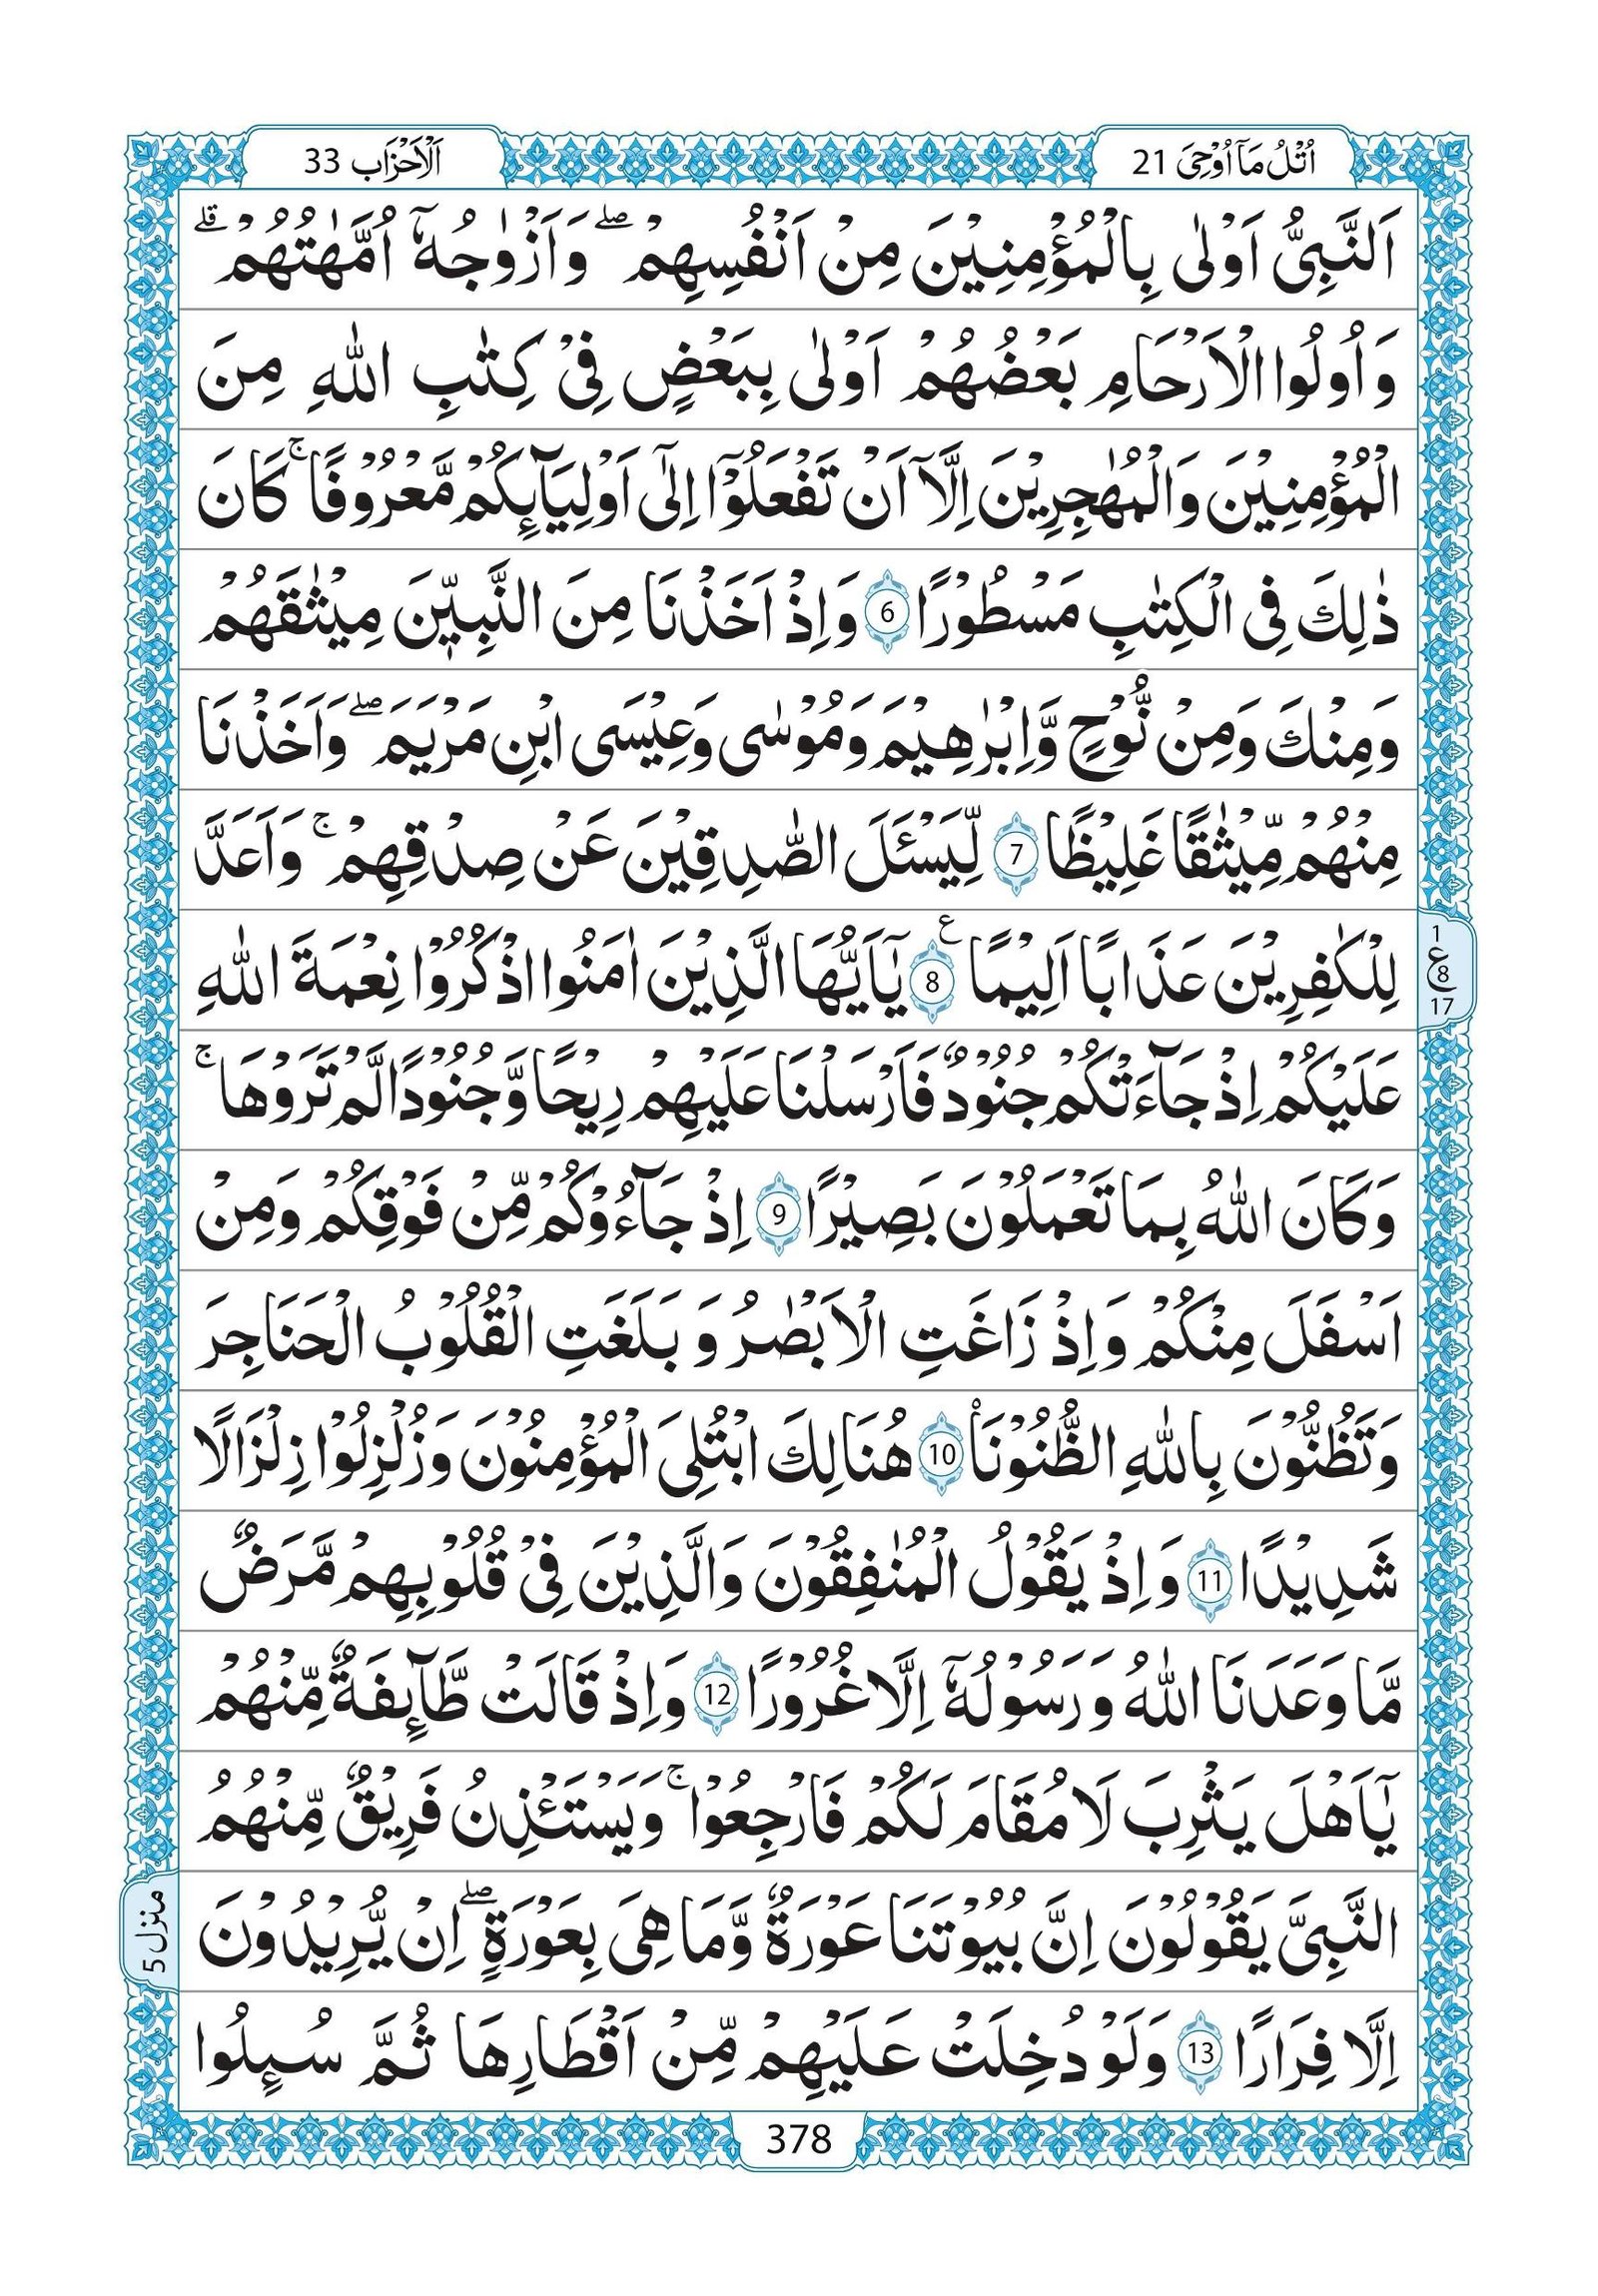 اُتْلُ مَاۤ اُوْحِیَ 21
اَلْاَحْزَاب 33
اَلنَّبِیُّ اَوْلٰی بِالْمُؤْمِنِیْنَ مِنْ اَنْفُسِهِمْ ۖ وَاَزْوٰجُهٗۤ اُمَّهٰتُهُمْ ۗ
وَاُولُوا الْاَرْحَامِ بَعْضُهُمْ اَوْلٰی بِبَعْضٍ فِیْ كِتٰبِ اللّٰهِ مِنَ
الْمُؤْمِنِیْنَ وَالْمُهٰجِرِیْنَ اِلَّاۤ اَنْ تَفْعَلُوْۤا اِلٰۤی اَوْلِیَآىِٕكُمْ مَّعْرُوْفًا ۚ كَانَ
ذٰلِكَ فِی الْكِتٰبِ مَسْطُوْرًا 6 وَاِذْ اَخَذْنَا مِنَ النَّبِیّٖنَ مِیْثٰقَهُمْ
وَمِنْكَ وَمِنْ نُّوْحٍ وَّاِبْرٰهِیْمَ وَمُوْسٰی وَعِیْسَی ابْنِ مَرْیَمَ ۖ وَاَخَذْنَا
مِنْهُمْ مِّیْثٰقًا غَلِیْظًا 7 لِّیَسْـَٔلَ الصّٰدِقِیْنَ عَنْ صِدْقِهِمْ ۚ وَاَعَدَّ
لِلْكٰفِرِیْنَ عَذَابًا اَلِیْمًا 8 ع یٰۤاَیُّهَا الَّذِیْنَ اٰمَنُوا اذْكُرُوْا نِعْمَةَ اللّٰهِ
1
ع
8
17
عَلَیْكُمْ اِذْ جَآءَتْكُمْ جُنُوْدٌ فَاَرْسَلْنَا عَلَیْهِمْ رِیْحًا وَّجُنُوْدًا لَّمْ تَرَوْهَا ۚ
وَكَانَ اللّٰهُ بِمَا تَعْمَلُوْنَ بَصِیْرًا 9 اِذْ جَآءُوْكُمْ مِّنْ فَوْقِكُمْ وَمِنْ
اَسْفَلَ مِنْكُمْ وَاِذْ زَاغَتِ الْاَبْصٰرُ وَ بَلَغَتِ الْقُلُوْبُ الْحَنَاجِرَ
وَتَظُنُّوْنَ بِاللّٰهِ الظُّنُوْنَا۠ 10 هُنَالِكَ ابْتُلِیَ الْمُؤْمِنُوْنَ وَزُلْزِلُوْا زِلْزَالًا
شَدِیْدًا 11 وَاِذْ یَقُوْلُ الْمُنٰفِقُوْنَ وَالَّذِیْنَ فِیْ قُلُوْبِهِمْ مَّرَضٌ
مَّا وَعَدَنَا اللّٰهُ وَرَسُوْلُهٗۤ اِلَّا غُرُوْرًا 12 وَاِذْ قَالَتْ طَّآىِٕفَةٌ مِّنْهُمْ
یٰۤاَهْلَ یَثْرِبَ لَا مُقَامَ لَكُمْ فَارْجِعُوْا ۚ وَیَسْتَـْٔذِنُ فَرِیْقٌ مِّنْهُمُ
النَّبِیَّ یَقُوْلُوْنَ اِنَّ بُیُوْتَنَا عَوْرَةٌ وَّمَا هِیَ بِعَوْرَةٍ ۖ اِنْ یُّرِیْدُوْنَ
منزل 5
اِلَّا فِرَارًا 13 وَلَوْ دُخِلَتْ عَلَیْهِمْ مِّنْ اَقْطَارِهَا ثُمَّ سُىِٕلُوا
378